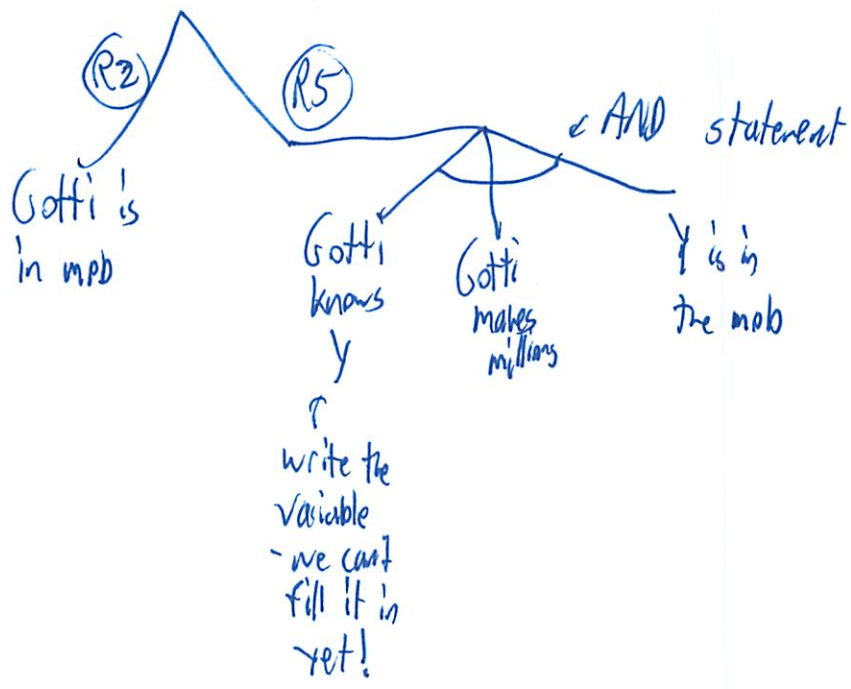 R2
R5
← AND statement
Gotti is
in mob
Gotti
knows
Y
Gotti
makes
millions
Y is in
the mob
↑
write the
variable
- we can't
fill it in
yet!